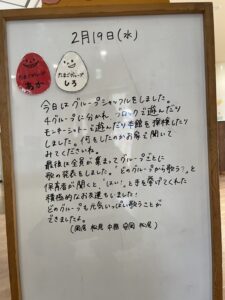 2月19日(水)
たまごグループ
あか
たまごグループ
しろ
今日はグループシャッフルをしました。
4グループに分かれ、ブロックで遊んだり
モンキーシートで遊んだり本館を探検したり
しました。何をしたのかお家で聞いて
みてくださいね。
最後に全員が集まってグループごとに
歌の発表をしました。"どのグループから歌う?"と
保育者が聞くと、"はい!"と手を挙げてくれた
積極的なお友達もしました!
どのグループも元気いっぱい歌うことが
できましたよ。